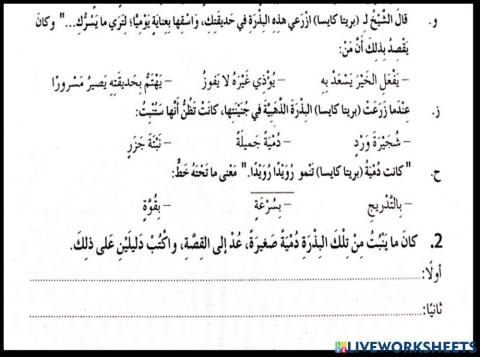 و. قالَ الشَّيْخُ لـ (بريتا كايسا) ازْرَعي هذِهِ البِذْرَةَ في حَديقَتِكِ، وَاسْقِها بِعِنايَةٍ يَوْمِيًّا؛ لِتَرَيْ ما يَسُرُّكِ..." وكانَ
يَقْصِدُ بِذلِكَ أَنَّ مَنْ:
– يَفْعَلِ الخَيْرَ يَسْعَدْ بِهِ – يُؤْذِي غَيْرَهُ لا يَفوزُ – يَهْتَمُّ بِحَديقَتِهِ يَصيرُ مَسْرورًا
ز. عِنْدَما زَرَعَتْ (بريتا كايسا) البِذْرَةَ الذَّهَبِيَّةَ في جُنَيْنَتِها، كانَتْ تَظُنُّ أَنَّها سَتُنْبِتُ:
– شُجَيْرَةَ وَرْدٍ – دُمْيَةً جَميلَةً – نَبْتَةَ جَزَرٍ
ح. "كانت دُمْيَةُ (بريتا كايسا) تَنْمو رُوَيْدًا رُوَيْدًا." مَعْنى ما تَحْتَهُ خَطٌّ:
– بِالتَّدْريجِ – بِسُرْعَةٍ – بِقُوَّةٍ
2. كانَ ما يَنْبُتُ مِنْ تِلْكَ البِذْرَةِ دُمْيَةً صَغيرَةً، عُدْ إِلى القِصَّةِ، وَاكْتُبْ دَليلَيْنِ عَلى ذلِكَ.
أولًا:
ثانيًا:
LIVEWORKSHEETS